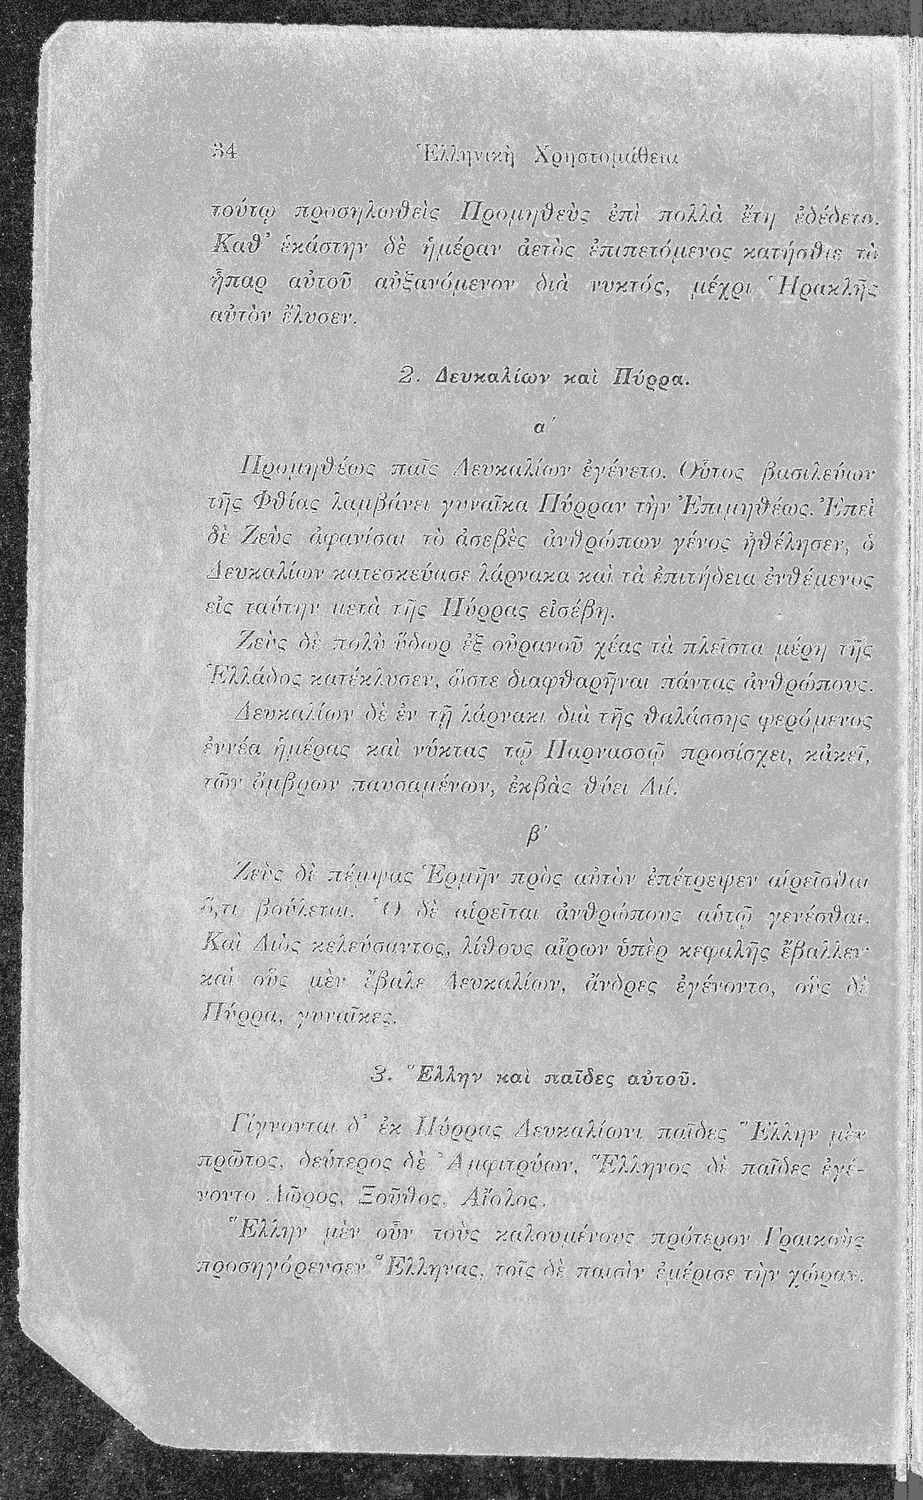 34 Ἑλληνικὴ Χρηστομάθεια
τούτῳ προσηλωθεὶς Προμηθεὺς ἐπὶ πολλὰ ἔτη ἐδέδετο.
Καθ’ ἑκάστην δὲ ἡμέραν ἀετὸς ἐπιπετόμενος κατήσθιε τὸ
ἧπαρ αὐτοῦ αὐξανόμενον διὰ νυκτός, μέχρι Ἡρακλῆς
αὐτὸν ἔλυσεν.
2. Δευκαλίων καὶ Πύρρα.
α΄
Προμηθέως παῖς Δευκαλίων ἐγένετο. Οὗτος βασιλεύων
τῆς Φθίας λαμβάνει γυναῖκα Πύρραν τὴν Ἐπιμηθέως. Ἐπεὶ
δὲ Ζεὺς ἀφανίσαι τὸ ἀσεβὲς ἀνθρώπων γένος ἠθέλησεν, ὁ
Δευκαλίων κατεσκεύασε λάρνακα καὶ τὰ ἐπιτήδεια ἐνθέμενος
εἰς ταύτην μετὰ τῆς Πύρρας εἰσέβη.
Ζεὺς δὲ πολὺ ὕδωρ ἐξ οὐρανοῦ χέας τὰ πλεῖστα μέρη τῆς
Ἑλλάδος κατέκλυσεν, ὥστε διαφθαρῆναι πάντας ἀνθρώπους.
Δευκαλίων δὲ ἐν τῇ λάρνακι διὰ τῆς θαλάσσης φερόμενος
ἐννέα ἡμέρας καὶ νύκτας τῷ Παρνασσῷ προσίσχει, κἀκεῖ,
τῶν ὄμβρων παυσαμένων, ἐκβὰς θύει Διί.
β΄
Ζεὺς δὲ πέμψας Ἑρμῆν πρὸς αὐτὸν ἐπέτρεψεν αἱρεῖσθαι
ὅ,τι βούλεται. Ὁ δὲ αἱρεῖται ἀνθρώπους αὑτῷ γενέσθαι.
Καὶ Διὸς κελεύσαντος, λίθους αἴρων ὑπὲρ κεφαλῆς ἔβαλλεν·
καὶ οὓς μὲν ἔβαλε Δευκαλίων, ἄνδρες ἐγένοντο, οὓς δὲ
Πύρρα, γυναῖκες.
3. Ἕλλην καὶ παῖδες αὐτοῦ.
Γίγνονται δ’ ἐκ Πύρρας Δευκαλίωνι παῖδες Ἕλλην μὲν
πρῶτος, δεύτερος δὲ Ἀμφιτρύων, Ἕλληνος δὲ παῖδες ἐγέ-
νοντο Δῶρος, Ξοῦθος, Αἴολος.
Ἕλλην μὲν οὖν τοὺς καλουμένους πρότερον Γραικοὺς
προσηγόρευσεν Ἕλληνας, τοῖς δὲ παισὶν ἐμέρισε τὴν χώραν.